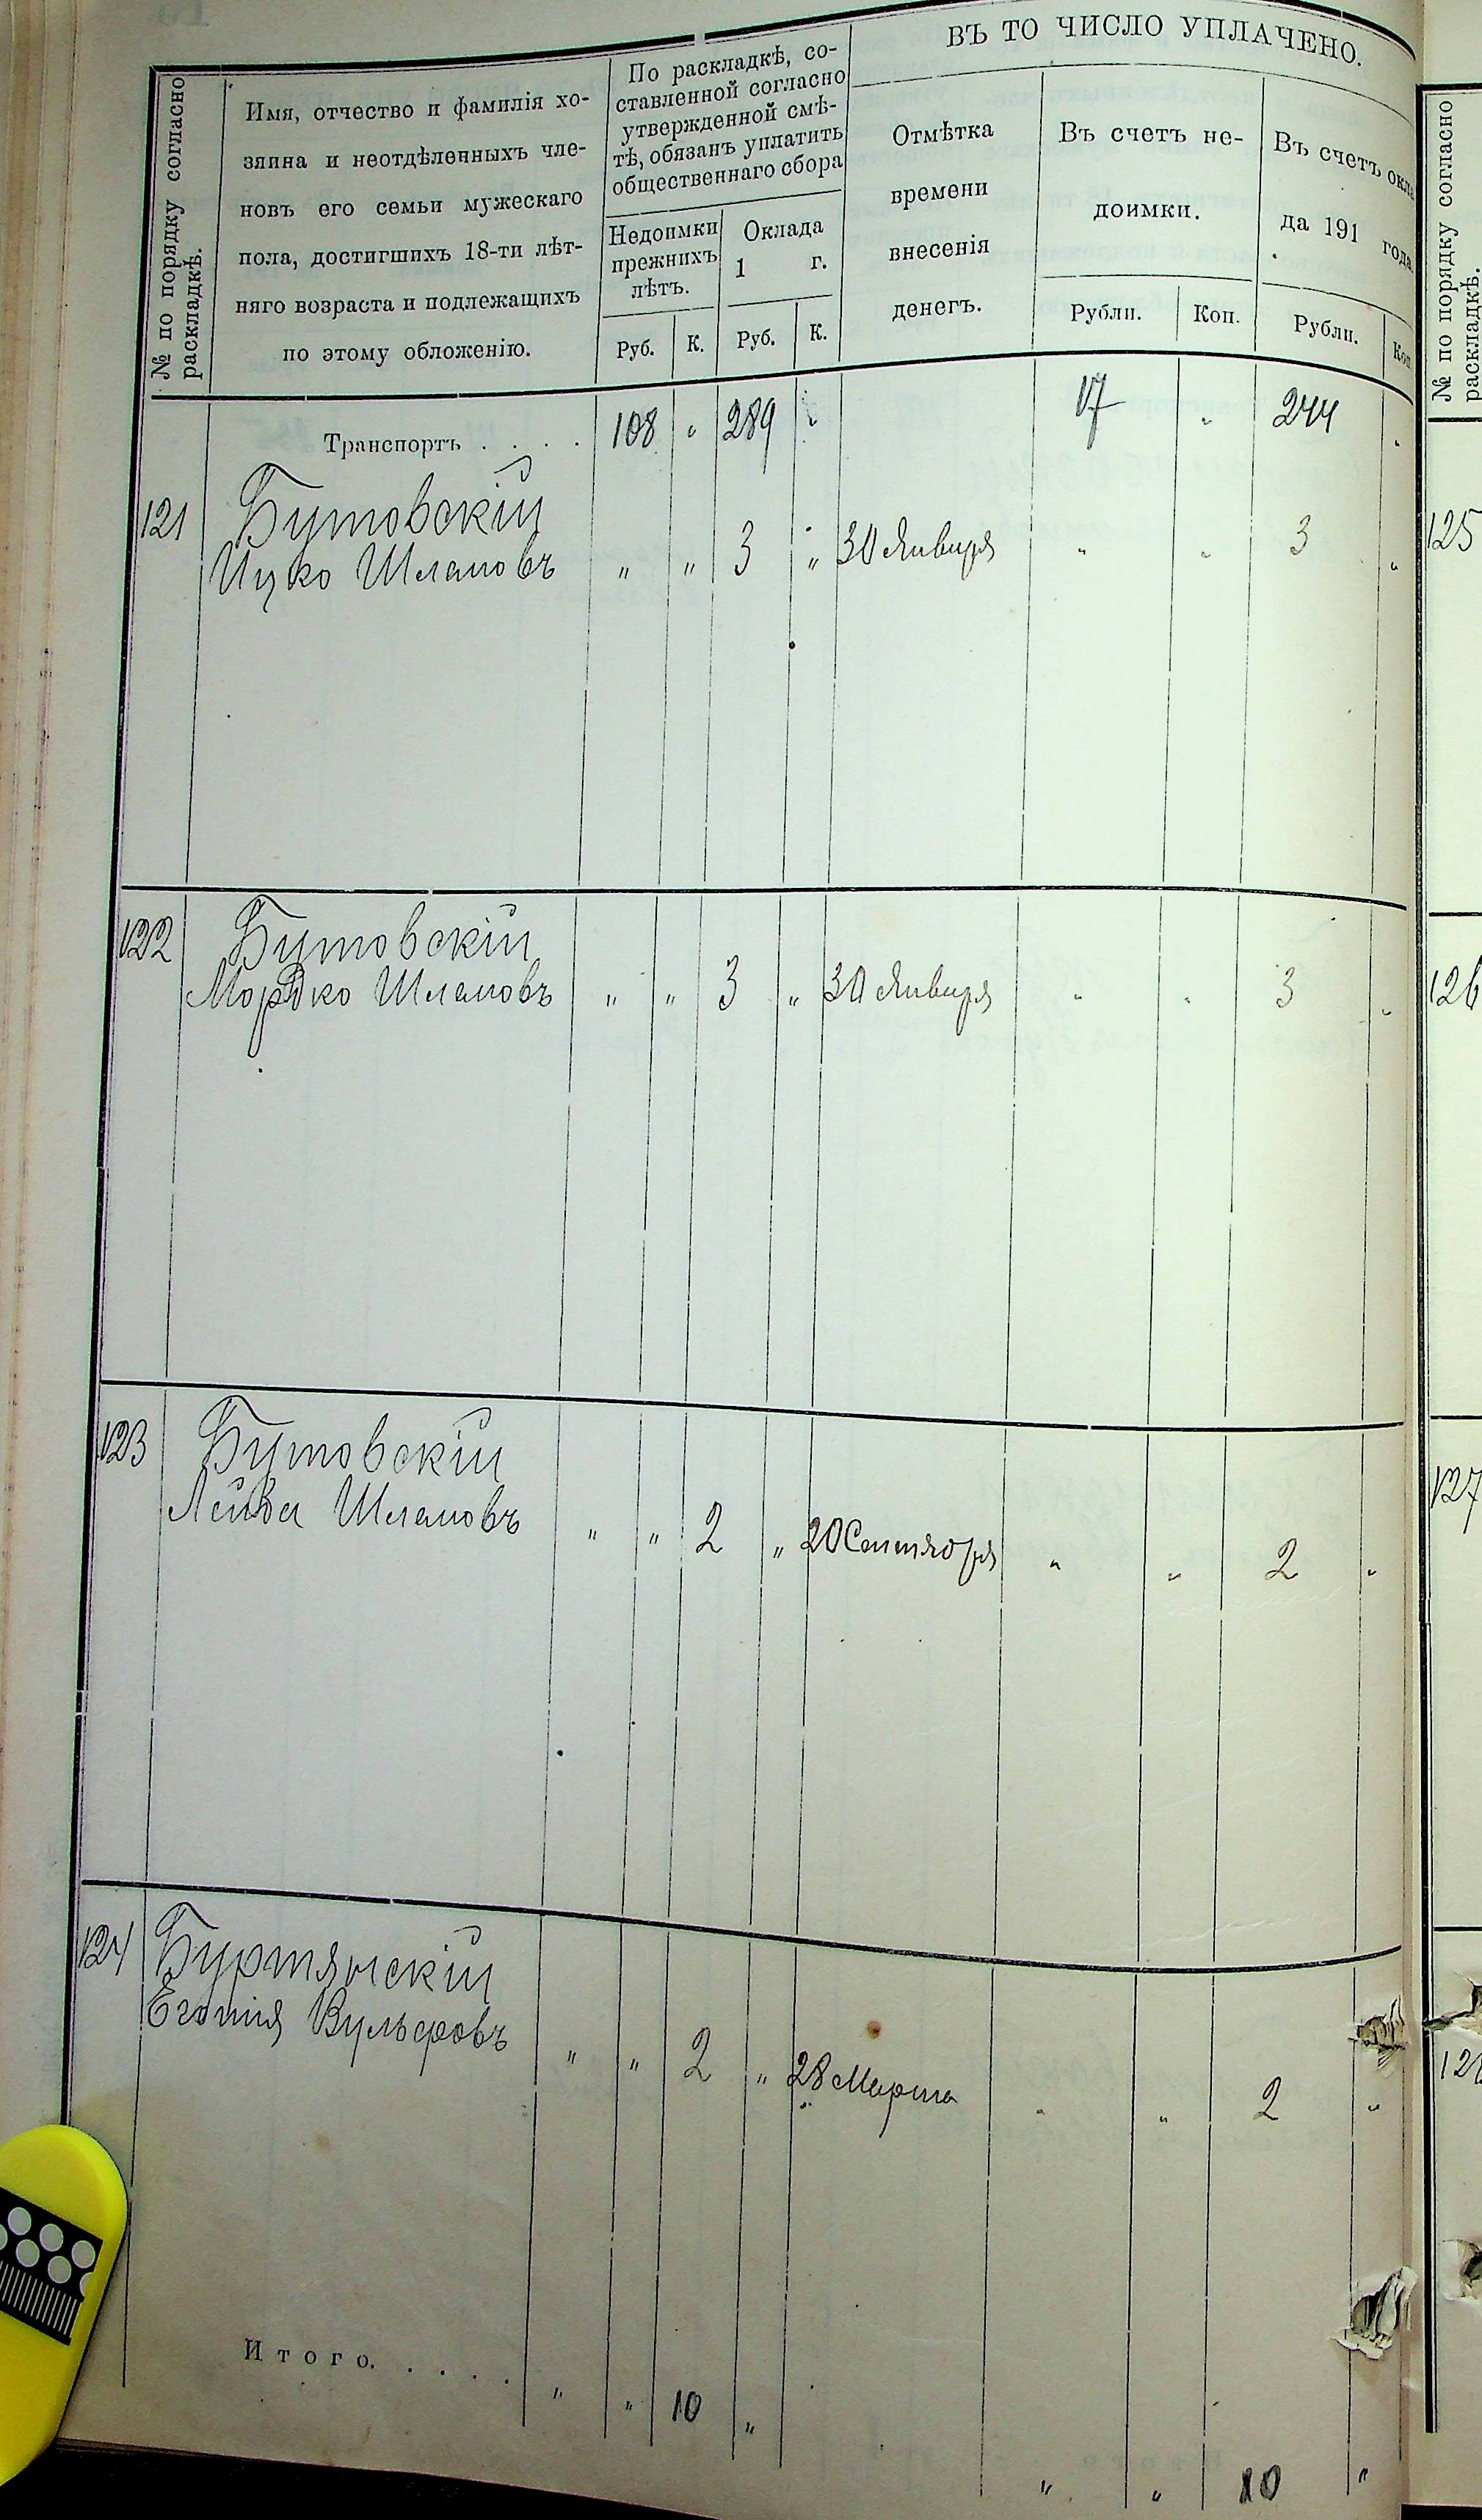 № по порядку согласно
раскладкѣ.
Имя, отчество и фамилія хо-
зяина и неотдѣленныхъ чле-
новъ его семьи мужескаго
пола, достигшихъ 18-ти лѣт-
няго возраста и подлежащихъ
по этому обложенію.
По раскладкѣ, со-
ставленной согласно
утвержденной смѣ-
тѣ, обязанъ уплатить
общественнаго сбора
Недоимки
прежнихъ
лѣтъ.
Оклада
1 г.
Руб. К. Руб. К.
ВЪ ТО ЧИСЛО УПЛАЧЕНО.
Отмѣтка
времени
внесенія
денегъ.
Въ счетъ не-
доимки.
Рубли. Коп.
Въ счетъ окла-
да 191 года.
Рубли. Коп.
Транспортъ . . . . 108 " 289 " 17 " 244 "
121 Бутовскій
Ицко Шлемовъ " " 3 " 30 Января " " 3 "
122 Бутовскій
Мордко Шлемовъ " " 3 " 30 Января " " 3 "
123 Бутовскій
Лейба Шлемовъ " " 2 " 20 Сентября " " 2 "
124 Буртянскій
Вульфовъ " " 2 " 28 Марта " " 2 "
Итого. . . . . " " 10 "
" " 10 "
№ по порядку согласно
раскладкѣ.
125
126
127